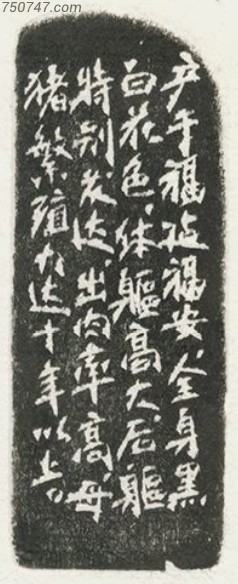 750747.com
产于福建福安、全身黑
白花色、体躯高大、后躯
特别发达、出肉率高、母
猪繁殖力达十年以上。